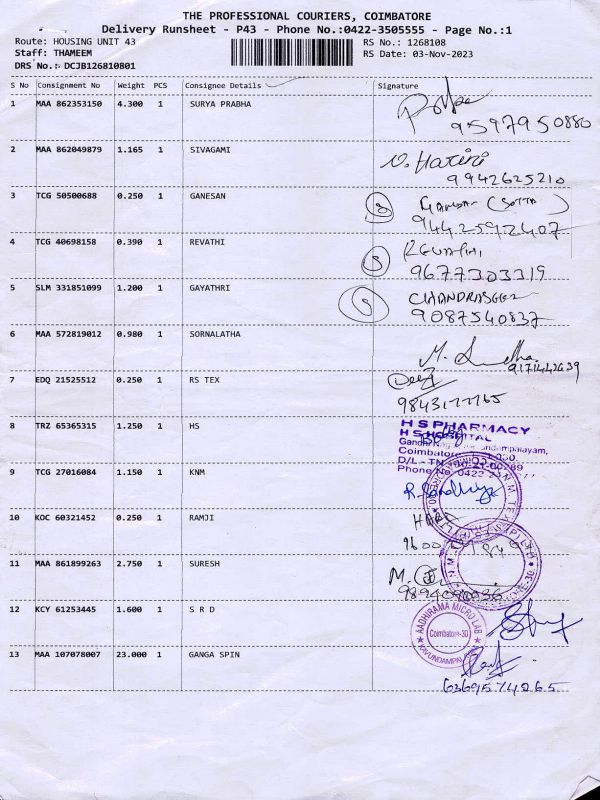 THE PROFESSIONAL COURIERS, COIMBATORE
Delivery Runsheet - P43 - Phone No.:0422-3505555 - Page No.:1
Route: HOUSING UNIT 43 RS No.: 1268108
Staff: THAMEEM RS Date: 03-Nov-2023
DRS No.: DCJB126810801
S No Consignment No Weight PCS Consignee Details Signature
1 MAA 862353150 4.300 1 SURYA PRABHA
9597950880
2 MAA 862049879 1.165 1 SIVAGAMI V. Harini
9942625210
3 TCG 50500688 0.250 1 GANESAN
9442592407
4 TCG 40698158 0.390 1 REVATHI
9677303319
5 SLM 331851099 1.200 1 GAYATHRI
9087540837
6 MAA 572819012 0.980 1 SORNALATHA
7 EDQ 21525512 0.250 1 RS TEX
8 TRZ 65365315 1.250 1 HS
H S PHARMACY
H S HOSPITAL
Coimbatore
D/L - TN
Phone No. 0422
9 TCG 27016084 1.150 1 KNM
10 KOC 60321452 0.250 1 RAMJI
11 MAA 861899263 2.750 1 SURESH
12 KCY 61253445 1.600 1 S R D
AADHIRAMA MICRO LAB
Coimbatore-30
13 MAA 107078007 23.000 1 GANGA SPIN
6369574265